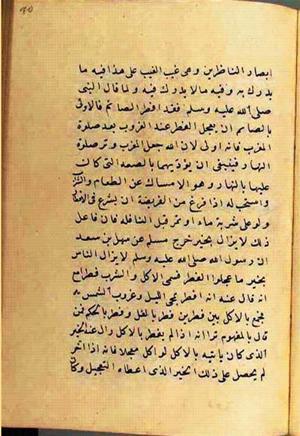 ابصار الناظرين وهي غيب الغيب على هذا فيه ما
يدرك به وفيه ما لا يدرك فيه ولما قال النبي
صلى الله عليه وسلم فقد افطر الصائم فالاولى
بالصائم ان يعجل الفطر عند الغروب بعد صلوة
المغرب فانه اولى لان الله جعل المغرب وتر صلوة
النهار فينبغي ان يؤديها بالصفة التي كان
عليها بالنهار وهو الامساك عن الطعام والشرب
واستحب له اذا فرغ من الفريضة ان يشرع في الافطار
ولو على شربة ماء او تمر قبل النافلة فان فاعل
ذلك لا يزال بخير خرج مسلم عن سهل بن سعد
ان رسول الله صلى الله عليه وسلم لا يزال الناس
بخير ما عجلوا الفطر فسمي الاكل والشرب فطرا مع
انه قال عنه انه افطر بمجي الليل وغروب الشمس
فجمع بالاكل بين فطرين فطر بالفعل وفطر بالحكم فمن
قال بالمفهوم يرا انه اذا لم يفطر بالاكل وال عنه الخير
الذي كان ياتيه بالاكل لو اكل معجلا فانه اذا اخر
لم يحصل على ذلك الخير الذي اعطاه التعجيل وكان